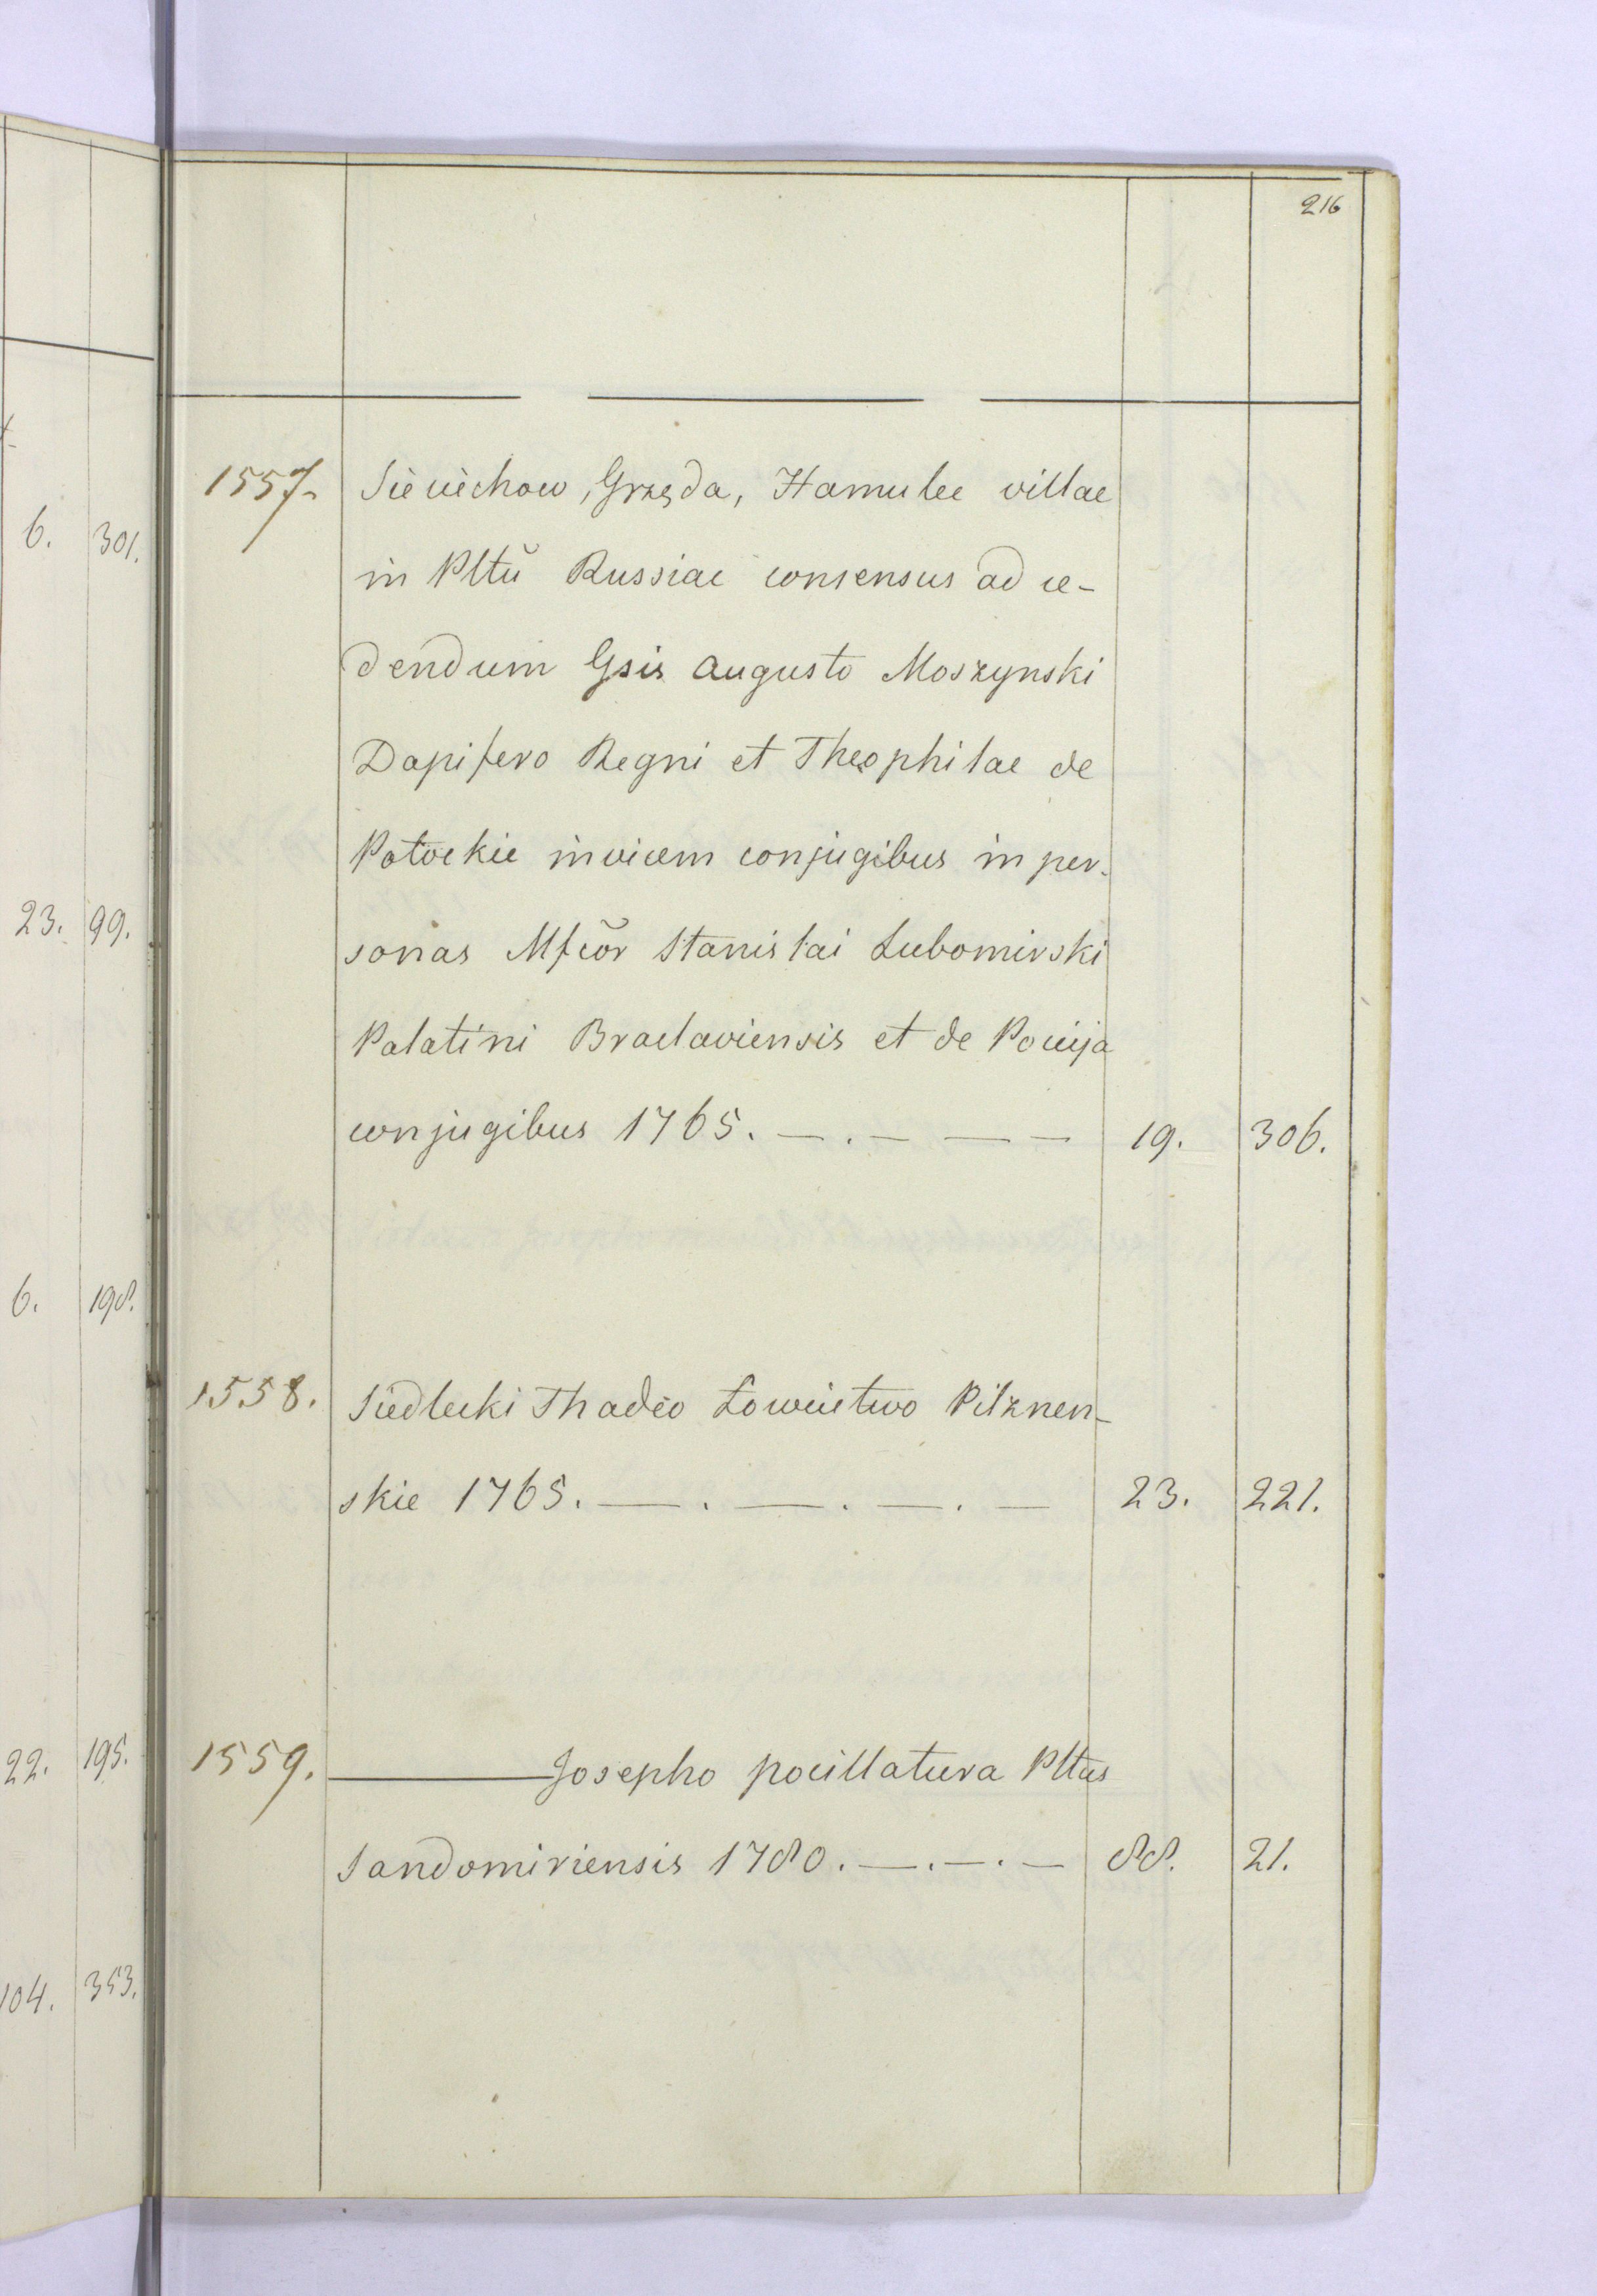 216
1557. Sieciechow, Grzęda, Hamulec villae
in Pltũ Russiae consensus ad ce-
dendum Gsis Augusto Moszynski
Dapifero Regni et Theophilae de
Potockie invicem conjugibus in per-
sonas Mfcõr Stanislai Lubomirski
Palatini Braclaviensis et de Pociija
conjugibus 1765. — . — — — 19. 306.
1558. Siedlecki Thadeo Łowcictwo Pilznen-
skie 1765. — . — . — . — 23. 221.
1559. ——— Josepho pocillatura Pltus
Sandomiriensis 1780. — . — . — 88. 21.
6. 301.
23. 99.
6. 198.
22. 195.
104. 353.